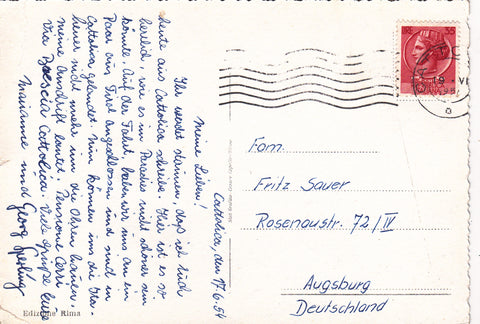 Cattolica, den 17.6.54
Meine Lieben!
Ihr werdet staunen, daß ich Euch
heute aus Cattolica schreibe. Hier ist es so
herrlich, wie es im Paradies nicht schöner sein
könnte. Auf der Fahrt haben wir uns an ein
Paar aus Tirol angeschlossen und sind in
Cattolica gelandet. Nun können uns die
heuer nicht mehr in die Ohren hauen.
Meine Anschrift lautet: Pensione Cerri
Via Brescia Cattolica. Viele Grüße Eure
Marianne und Georg
Fam.
Fritz Sauer
Rosenaustr. 72/IV
Augsburg
Deutschland
Edizione Rima